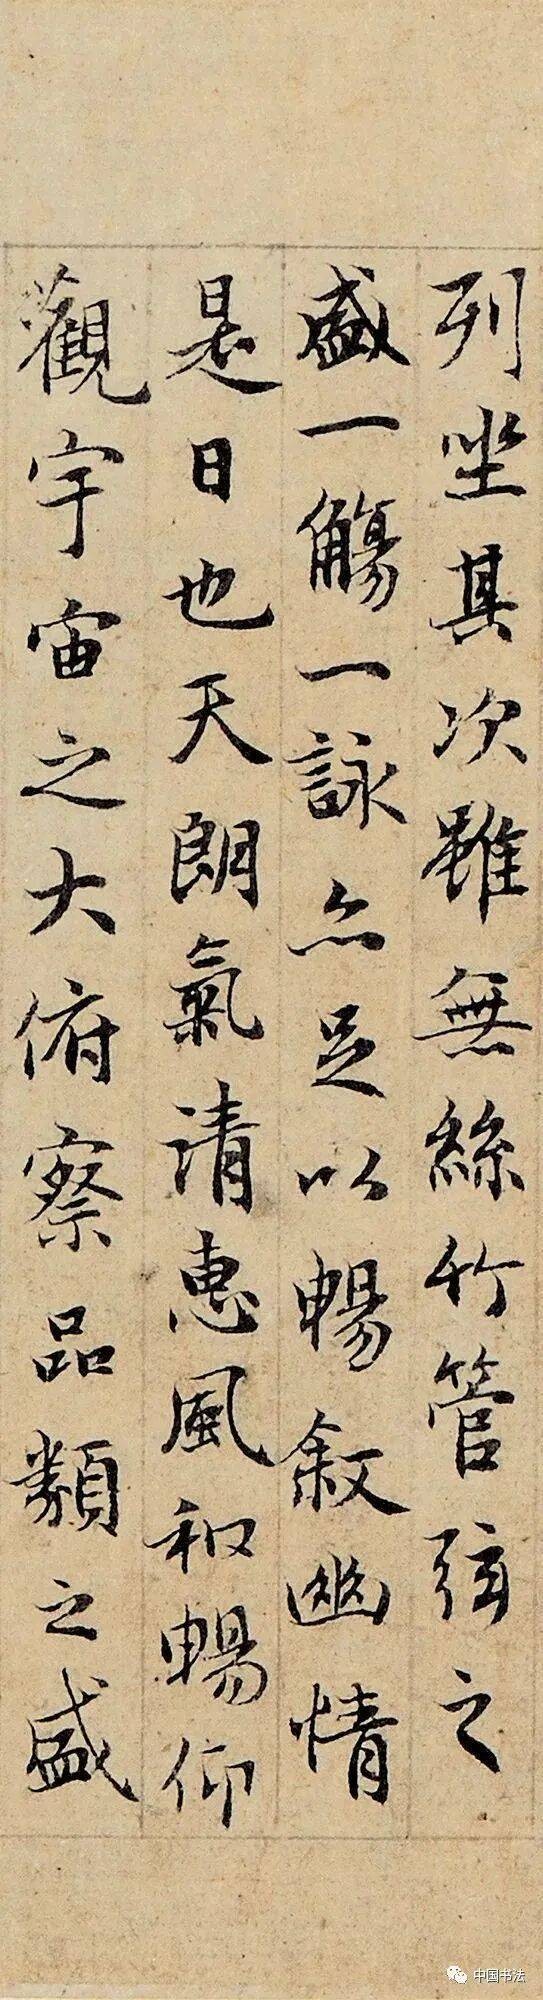 列坐其次雖無絲竹管弦之
盛一觴一詠亦足以暢敘幽情
是日也天朗氣清惠風和暢仰
觀宇宙之大俯察品類之盛
中国书法